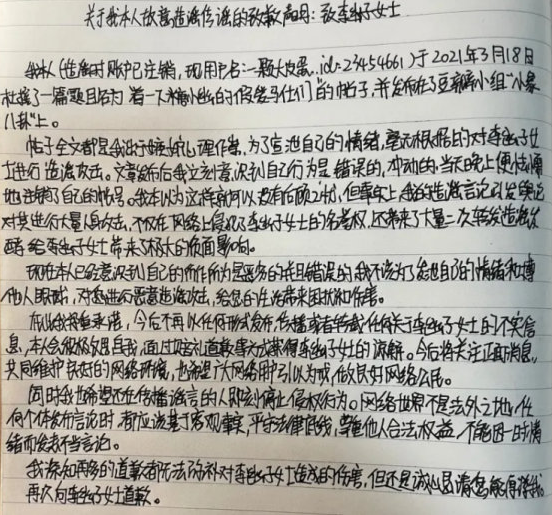 关于我本人故意造谣传谣的致歉声明：致李女士
本人（造谣时账户已注销，现用户名：一颗大皮蛋，id：23454661）于2021年3月18日
杜撰了一篇题目名为 看一下小的假驸马仕们的帖子，并发布在了豆瓣小组“小象
八卦”上。
帖子全文都是我出于嫉妒心理作祟，为了宣泄自己的情绪，毫无根据的对李女
士进行造谣攻击。文章发布后我立刻意识到自己行为是错误的，冲动的，当天晚上便
地注销了自己的帐号。我本以为这样就可以没有后顾之忧，但事实上我的造谣言论引发舆论
对其进行大量人身攻击，不仅在网络上侵犯了李女士的名誉权，还带来了大量二次转发造谣
给李女士带来了极大的负面影响。
现在本人已经意识到自己的所作所为是恶劣的并且错误的，我不该为了宣泄自己的情绪和博
他人眼球，对您进行恶意造谣攻击，给您的生活带来困扰和伤害。
在此我郑重承诺，今后不再以任何形式发布，传播或者转载任何关于李女士的不实信
息，本人会积极反思自我，通过赔礼道歉等方式获得李女士的谅解。今后将关注正面消息，
共同维护良好的网络环境，也希望广大网络用户引以为戒，做良好网络公民。
同时我也希望还在传播谣言的人即刻停止侵权行为。网络世界不是法外之地，任
何个体发布言论时，都应该基于客观事实，平守法律底线，尊重他人合法权益，不能因一时情
绪而发表不当言论。
我深知再多的道歉都无法弥补对李女士造成的伤害，但还是诚心恳请您能原谅我。
再次向李女士道歉。